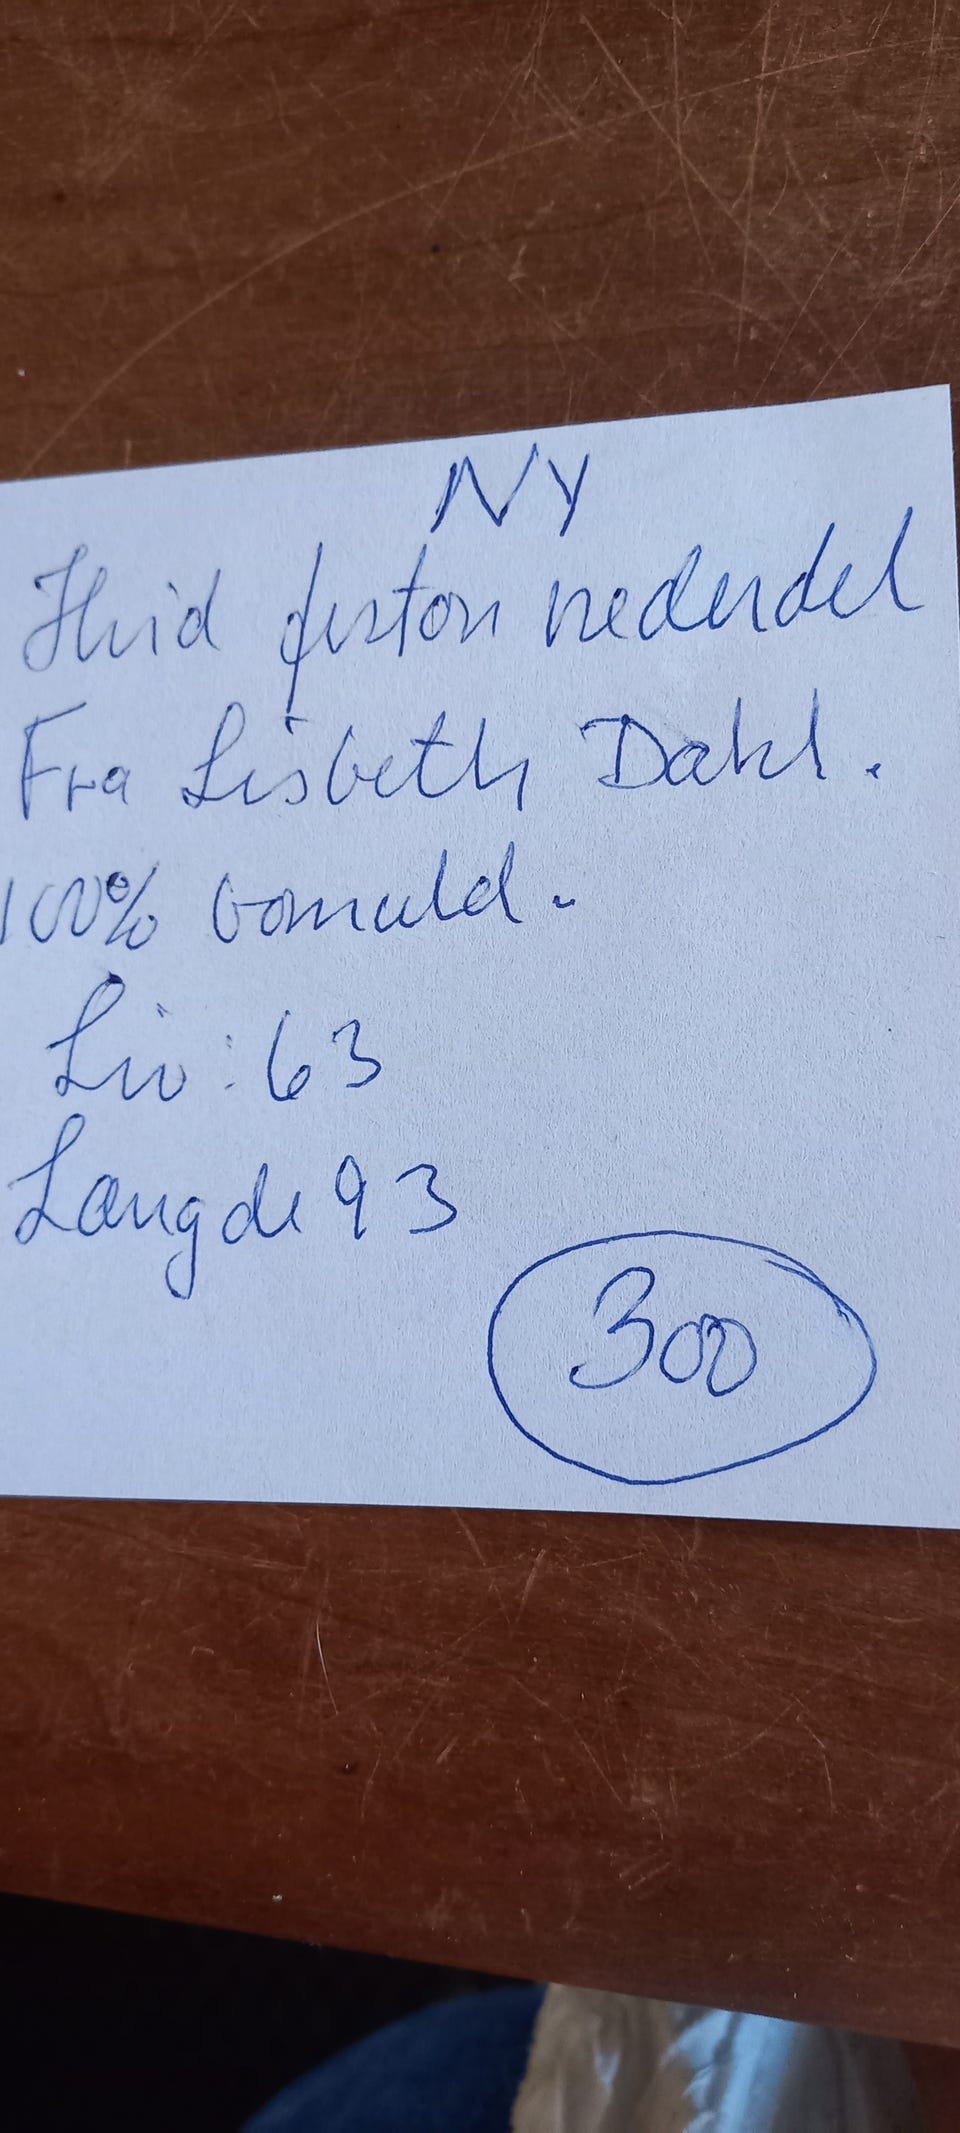 NY
Hvid feston nederdel
Fra Lisbeth Dahl.
100% bomuld.
Liv: 63
Længde 93
300